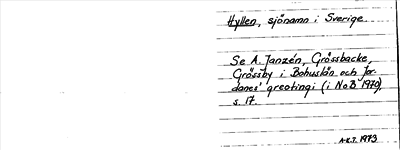 Hyllen, sjönamn i Sverige
Se A. Janzén, Grössbacke,
Grössby i Bohuslän och Jor-
danes' greotingi (i NoB 1970),
s. 17.
A.K.T. 1973